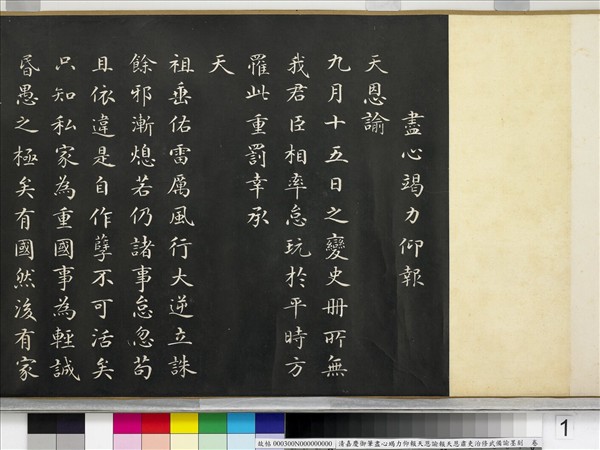 盡心竭力仰報
天恩諭
九月十五日之變史冊所無
我君臣相率怠玩於平時方
罹此重罰幸承
天
祖垂佑雷厲風行大逆立誅
餘邪漸熄若仍諸事怠忽苟
且依違是自作孽不可活矣
只知私家為重國事為輕誠
昬愚之極矣有國然後有家
故帖 000300N000000000 清嘉慶御筆盡心竭力仰報天恩諭報天恩肅吏治修武備諭墨刻 卷
1